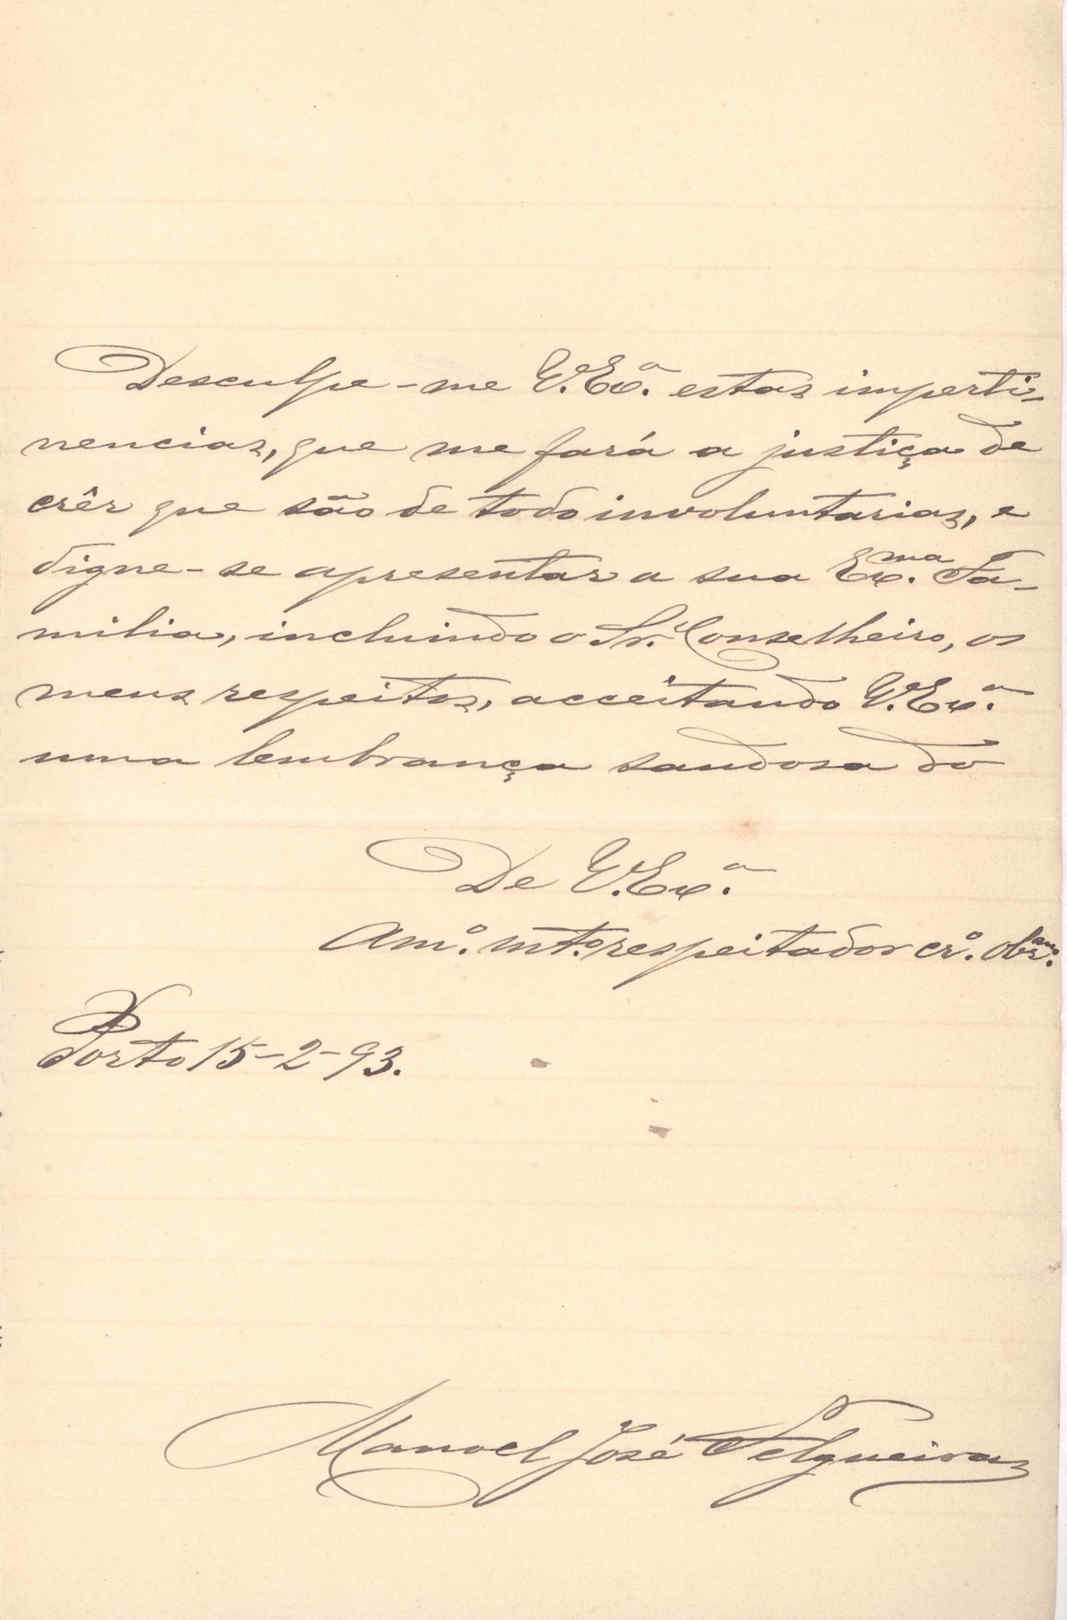 Desculpe-me V. Exª. estas imperti-
nencias, que me fará a justiça de
crêr que são de todo involuntarias, e
digne-se apresentar a sua Exma. Fa-
milia, incluindo o Sr. Conselheiro, os
meus respeitos, acceitando V. Exª.
uma lembrança saudosa do
De V. Exª.
Amº. mtº. respeitador crº. obrmo.
Porto 15-2-93.
Manoel José Felgueiras